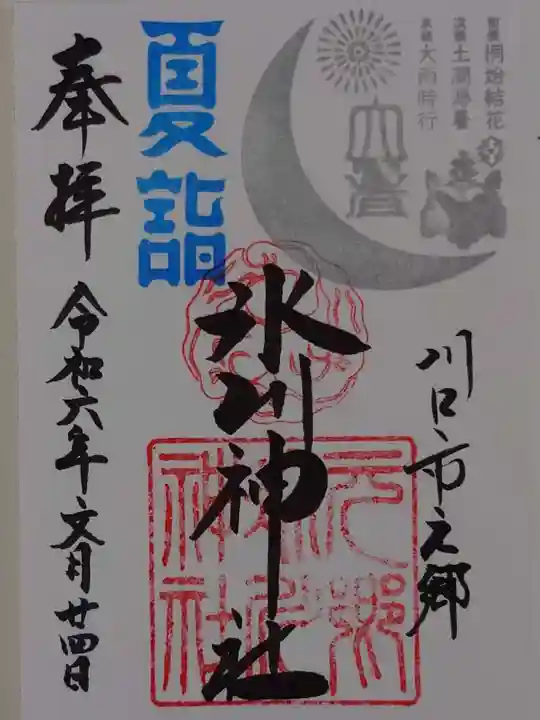 初候 桐始結花
次候 土潤溽暑
末候 大雨時行
大暑
夏詣
奉拝
川口市元郷
氷川神社
元郷
氷川
神社
令和六年文月廿四日